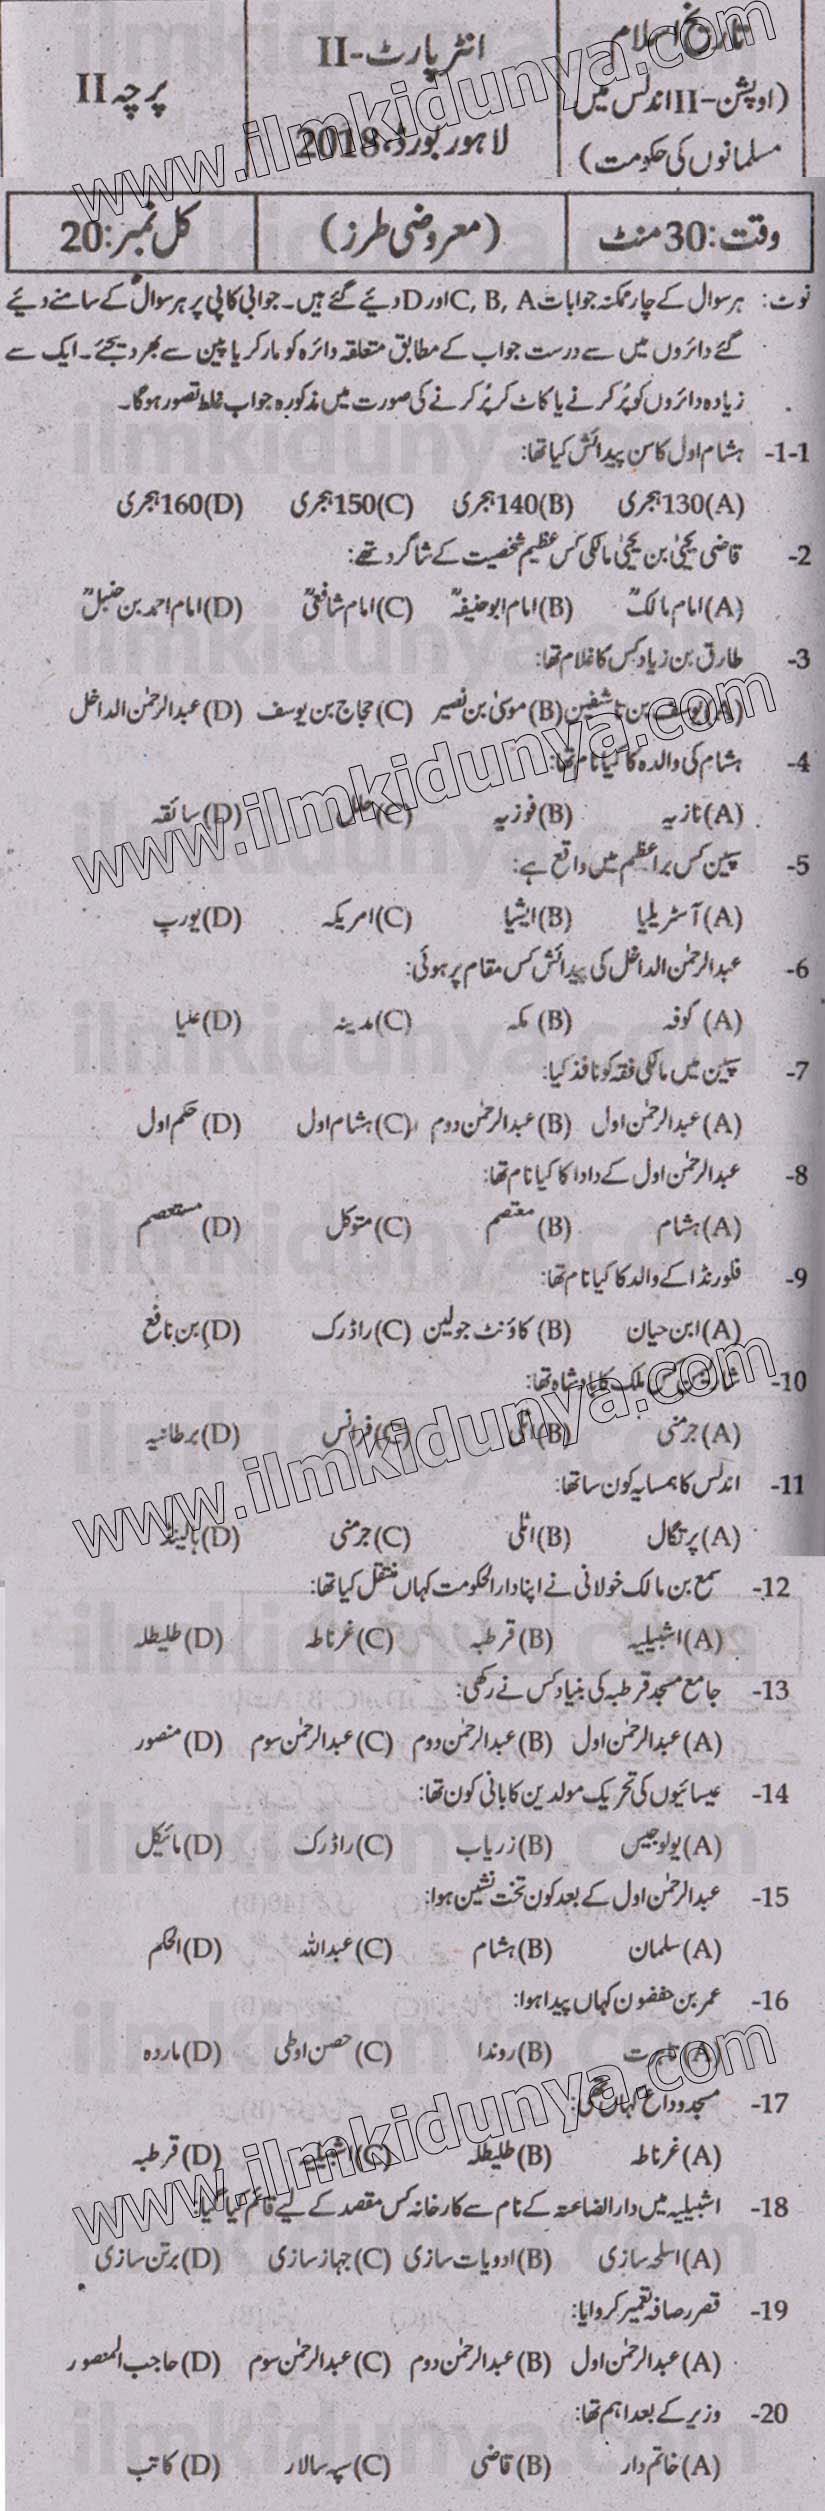 تاریخ اسلام
(اوپشن-II اندلس میں
مسلمانوں کی حکومت)
انٹر پارٹ-II
لاہور بورڈ، 2018
پرچہ II
وقت: 30 منٹ
(معروضی طرز)
کل نمبر: 20
نوٹ: ہر سوال کے چار ممکنہ جوابات C, B, A اور D دیئے گئے ہیں۔ جوابی کاپی پر ہر سوال کے سامنے دیئے
گئے دائروں میں سے درست جواب کے مطابق متعلقہ دائرہ کو مارکر یا پین سے بھر دیجئے۔ ایک سے
زیادہ دائروں کو پُر کرنے یا کاٹ کر پُر کرنے کی صورت میں مذکورہ جواب غلط تصور ہوگا۔
1-1- ہشام اول کا سن پیدائش کیا تھا:
(A) 130 ہجری (B) 140 ہجری (C) 150 ہجری (D) 160 ہجری
2- قاضی یحییٰ بن یحییٰ مالکی کس عظیم شخصیت کے شاگرد تھے:
(A) امام مالکؒ (B) امام ابوحنیفہؒ (C) امام شافعیؒ (D) امام احمد بن حنبلؒ
3- طارق بن زیاد کس کا غلام تھا:
(A) یوسف بن تاشفین (B) موسیٰ بن نصیر (C) حجاج بن یوسف (D) عبدالرحمٰن الداخل
4- ہشام کی والدہ کا کیا نام تھا:
(A) نازیہ (B) فوزیہ (C) حلل (D) سائقہ
5- سپین کس براعظم میں واقع ہے:
(A) آسٹریلیا (B) ایشیا (C) امریکہ (D) یورپ
6- عبدالرحمٰن الداخل کی پیدائش کس مقام پر ہوئی:
(A) کوفہ (B) مکہ (C) مدینہ (D) علیا
7- سپین میں مالکی فقہ کو نافذ کیا:
(A) عبدالرحمٰن اول (B) عبدالرحمٰن دوم (C) ہشام اول (D) حکم اول
8- عبدالرحمٰن اول کے دادا کا کیا نام تھا:
(A) ہشام (B) معتصم (C) متوکل (D) مستعصم
9- فلورنڈا کے والد کا کیا نام تھا:
(A) ابن حیان (B) کاؤنٹ جولین (C) راڈرک (D) بن نافع
10- شارلیمن کس ملک کا بادشاہ تھا:
(A) جرمنی (B) اٹلی (C) فرانس (D) برطانیہ
11- اندلس کا ہمسایہ کون سا تھا:
(A) پرتگال (B) اٹلی (C) جرمنی (D) ہالینڈ
12- سمح بن مالک خولانی نے اپنا دارالحکومت کہاں منتقل کیا تھا:
(A) اشبیلیہ (B) قرطبہ (C) غرناطہ (D) طلیطلہ
13- جامع مسجد قرطبہ کی بنیاد کس نے رکھی:
(A) عبدالرحمٰن اول (B) عبدالرحمٰن دوم (C) عبدالرحمٰن سوم (D) منصور
14- عیسائیوں کی تحریک مولدین کا بانی کون تھا:
(A) یولوجیس (B) زریاب (C) راڈرک (D) مائیکل
15- عبدالرحمٰن اول کے بعد کون تخت نشین ہوا:
(A) سلمان (B) ہشام (C) عبداللہ (D) الحکم
16- عمر بن حفصون کہاں پیدا ہوا:
(A) تاہرت (B) روندا (C) حصن اوطی (D) ماردہ
17- مسجد وداع کہاں تھی:
(A) غرناطہ (B) طلیطلہ (C) اشبیلیہ (D) قرطبہ
18- اشبیلیہ میں دارالضاعتہ کے نام سے کارخانہ کس مقصد کے لیے قائم کیا گیا:
(A) اسلحہ سازی (B) ادویات سازی (C) جہاز سازی (D) برتن سازی
19- قصر رصافہ تعمیر کروایا:
(A) عبدالرحمٰن اول (B) عبدالرحمٰن دوم (C) عبدالرحمٰن سوم (D) حاجب المنصور
20- وزیر کے بعد اہم تھا:
(A) خاتم دار (B) قاضی (C) سپہ سالار (D) کاتب
www.ilmkidunya.com
www.ilmkidunya.com
www.ilmkidunya.com
www.ilmkidunya.com